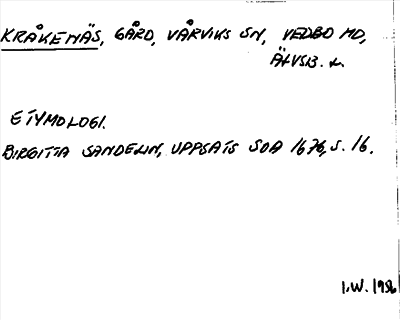 KRÅKENÄS, GÅRD, VÅRVIKS SN, VEDBO HD,
ÄLVSB. L.
ETYMOLOGI.
BIRGITTA SANDELIN, UPPSATS SOA 1676, S. 16.
I.W. 1986